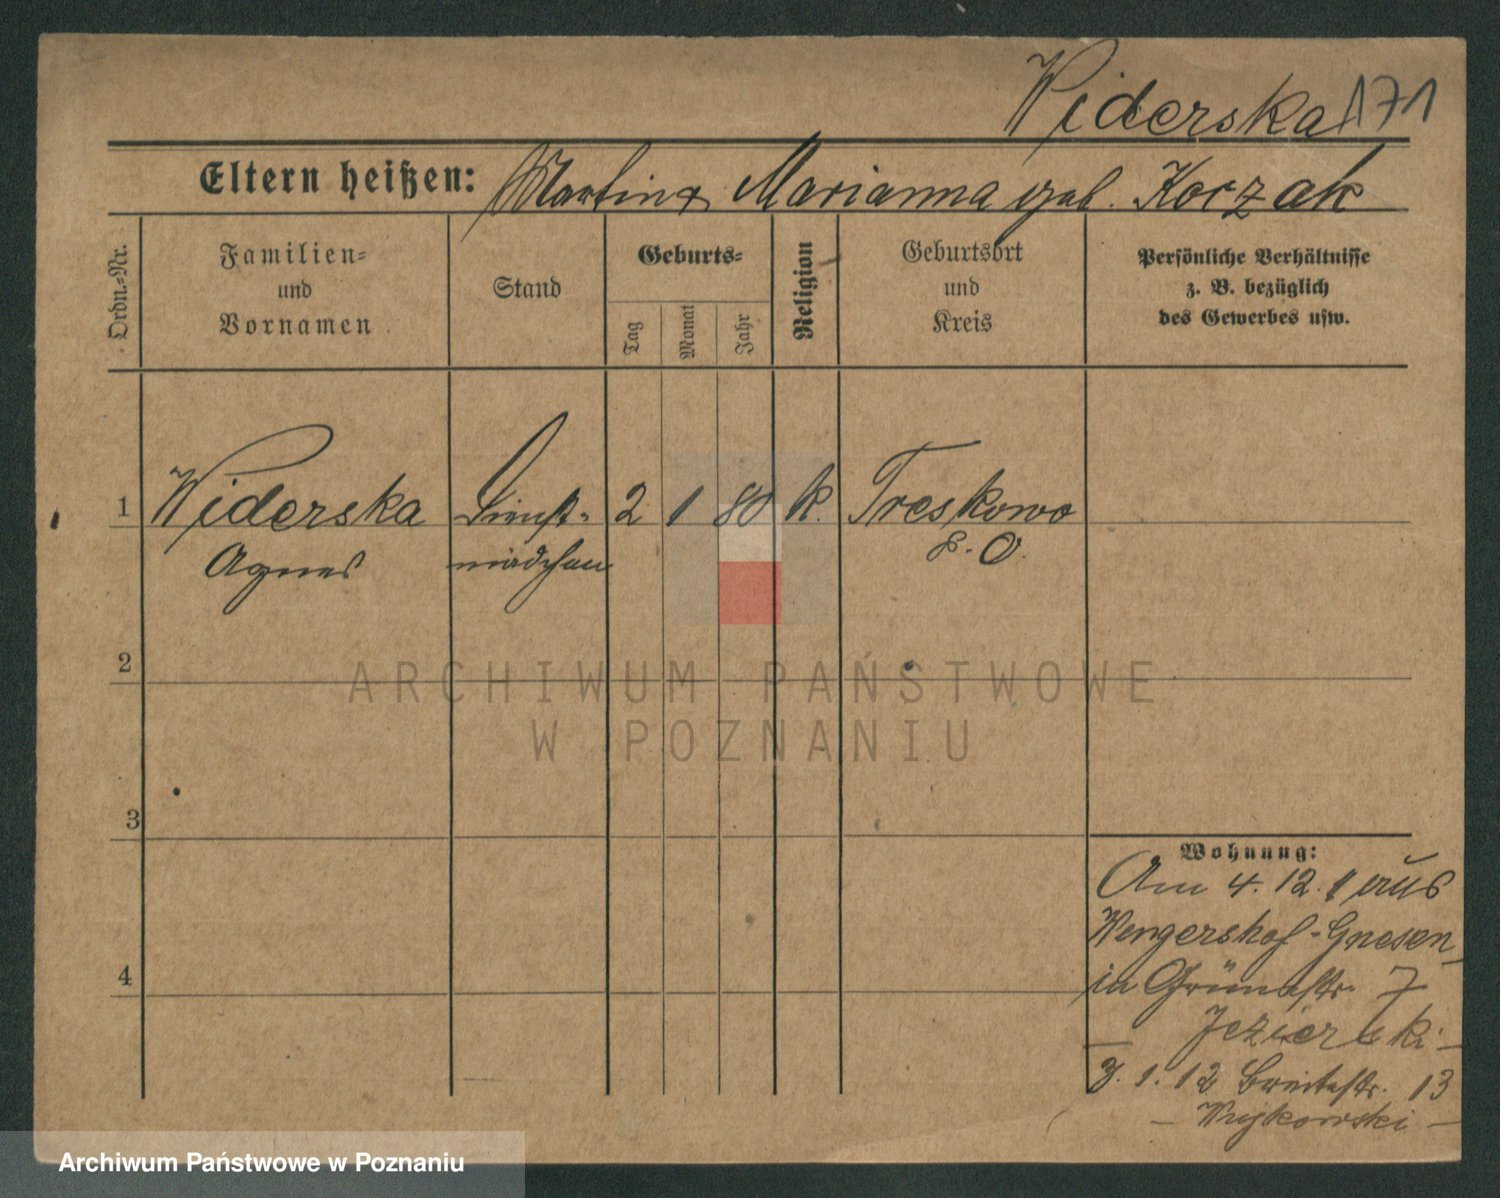 Widerska 171
Eltern heißen: Martin & Marianna geb. Korzak
Ordn.-Nr.
Familien-
und
Vornamen
Stand
Geburts-
Tag
Monat
Jahr
Religion
Geburtsort
und
Kreis
Persönliche Verhältnisse
z. B. bezüglich
des Gewerbes usw.
1 Widerska Dienst- 2 1 80 k. Treskowo
Agnes mädchen P. O.
2
3
4
Wohnung:
Am 4. 12. 11 aus
Wengershof-Gnesen
in Grünestr. 7
— Jezierski —
3. 1. 12 Breitestr. 13
— Wyjkowski —
ARCHIWUM PAŃSTWOWE
W POZNANIU
Archiwum Państwowe w Poznaniu